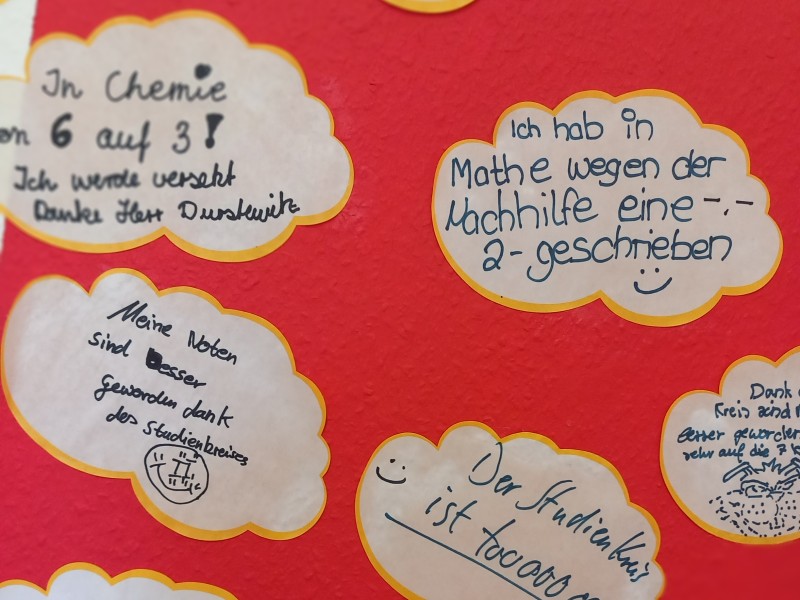 In Chemie
von 6 auf 3!
Ich werde versetzt
Danke Herr Durstewitz
Ich hab in
Mathe wegen der
Nachhilfe eine -.-
2- geschrieben
Meine Noten
sind besser
geworden dank
des Studienkreises
Der Studienkreis
ist toooooo
Dank
Kreis sind
besser geworden
sehr auf die 7